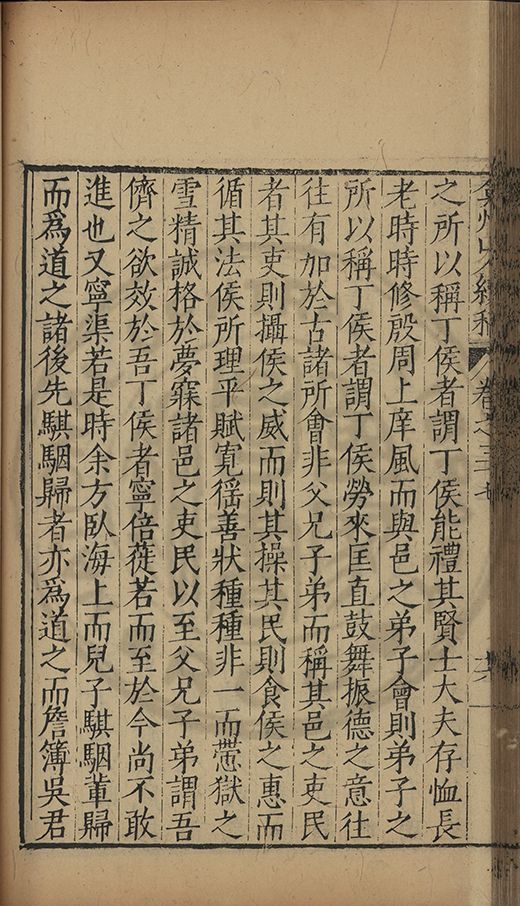 弇州山人續稿 卷之三十 十六
之所以稱丁侯者謂丁侯能禮其賢士大夫存恤長
老時時修殷周上庠風而與邑之弟子會則弟子之
所以稱丁侯者謂丁侯勞來匡直鼓舞振德之意往
往有加於古諸所會非父兄子弟而稱其邑之吏民
者其吏則攝侯之威而則其操其民則食侯之惠而
循其法侯所理平賦寬徭善狀種種非一而懲獄之
雪精誠格於夢寐諸邑之吏民以至父兄子弟謂吾
儕之欲效於吾丁侯者寧倍蓰若而至於今尚不敢
進也又寧渠若是時余方臥海上而兒子騏駰輩歸
而爲道之諸後先騏駰歸者亦爲道之而詹簿吳君